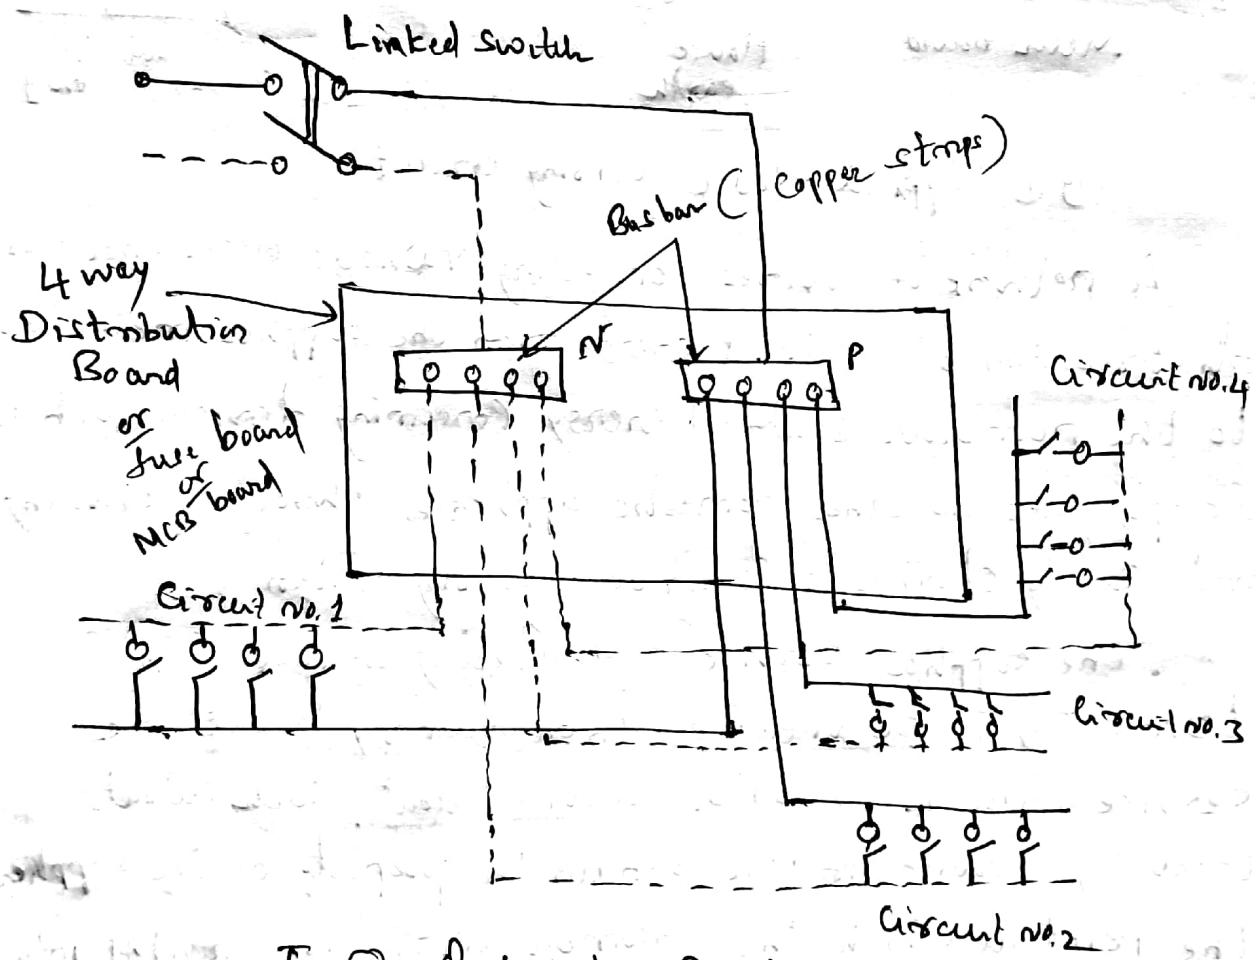 Linked switch
Busbar (copper strips)
4 way
Distribution
Board
or
fuse board
or
MCB board
N
P
Circuit No.4
Circuit No.1
Circuit No.3
Circuit No.2